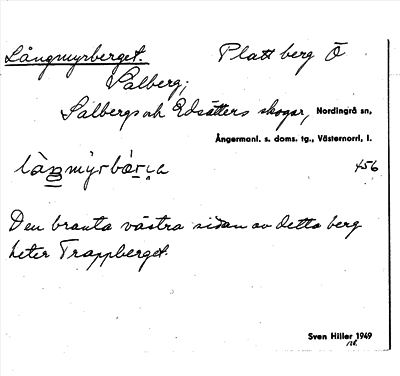 Långmyrberget. Platt berg Ö
Salberg,
Salbergs och Edsätters skogar, Nordingrå sn,
Ångermanl. s. doms. tg., Västernorrl. l.
456
Den branta västra sidan av detta berg
heter Trappberget.
Sven Hiller 1949